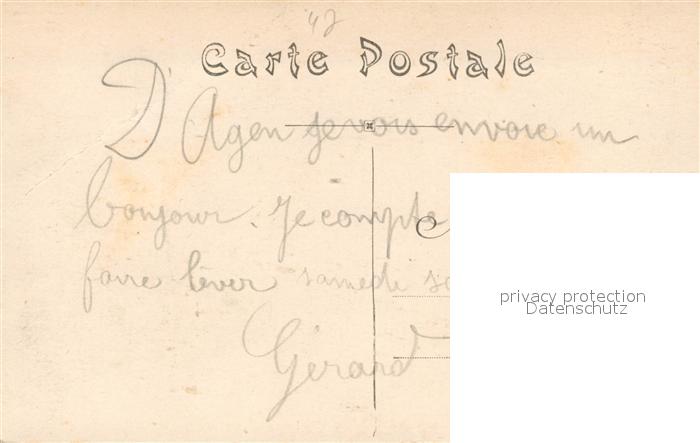 47
Carte Postale
D'Agen je vois envoie un
bonjour. Je compte
faire lever samedi
Gérard
privacy protection
Datenschutz